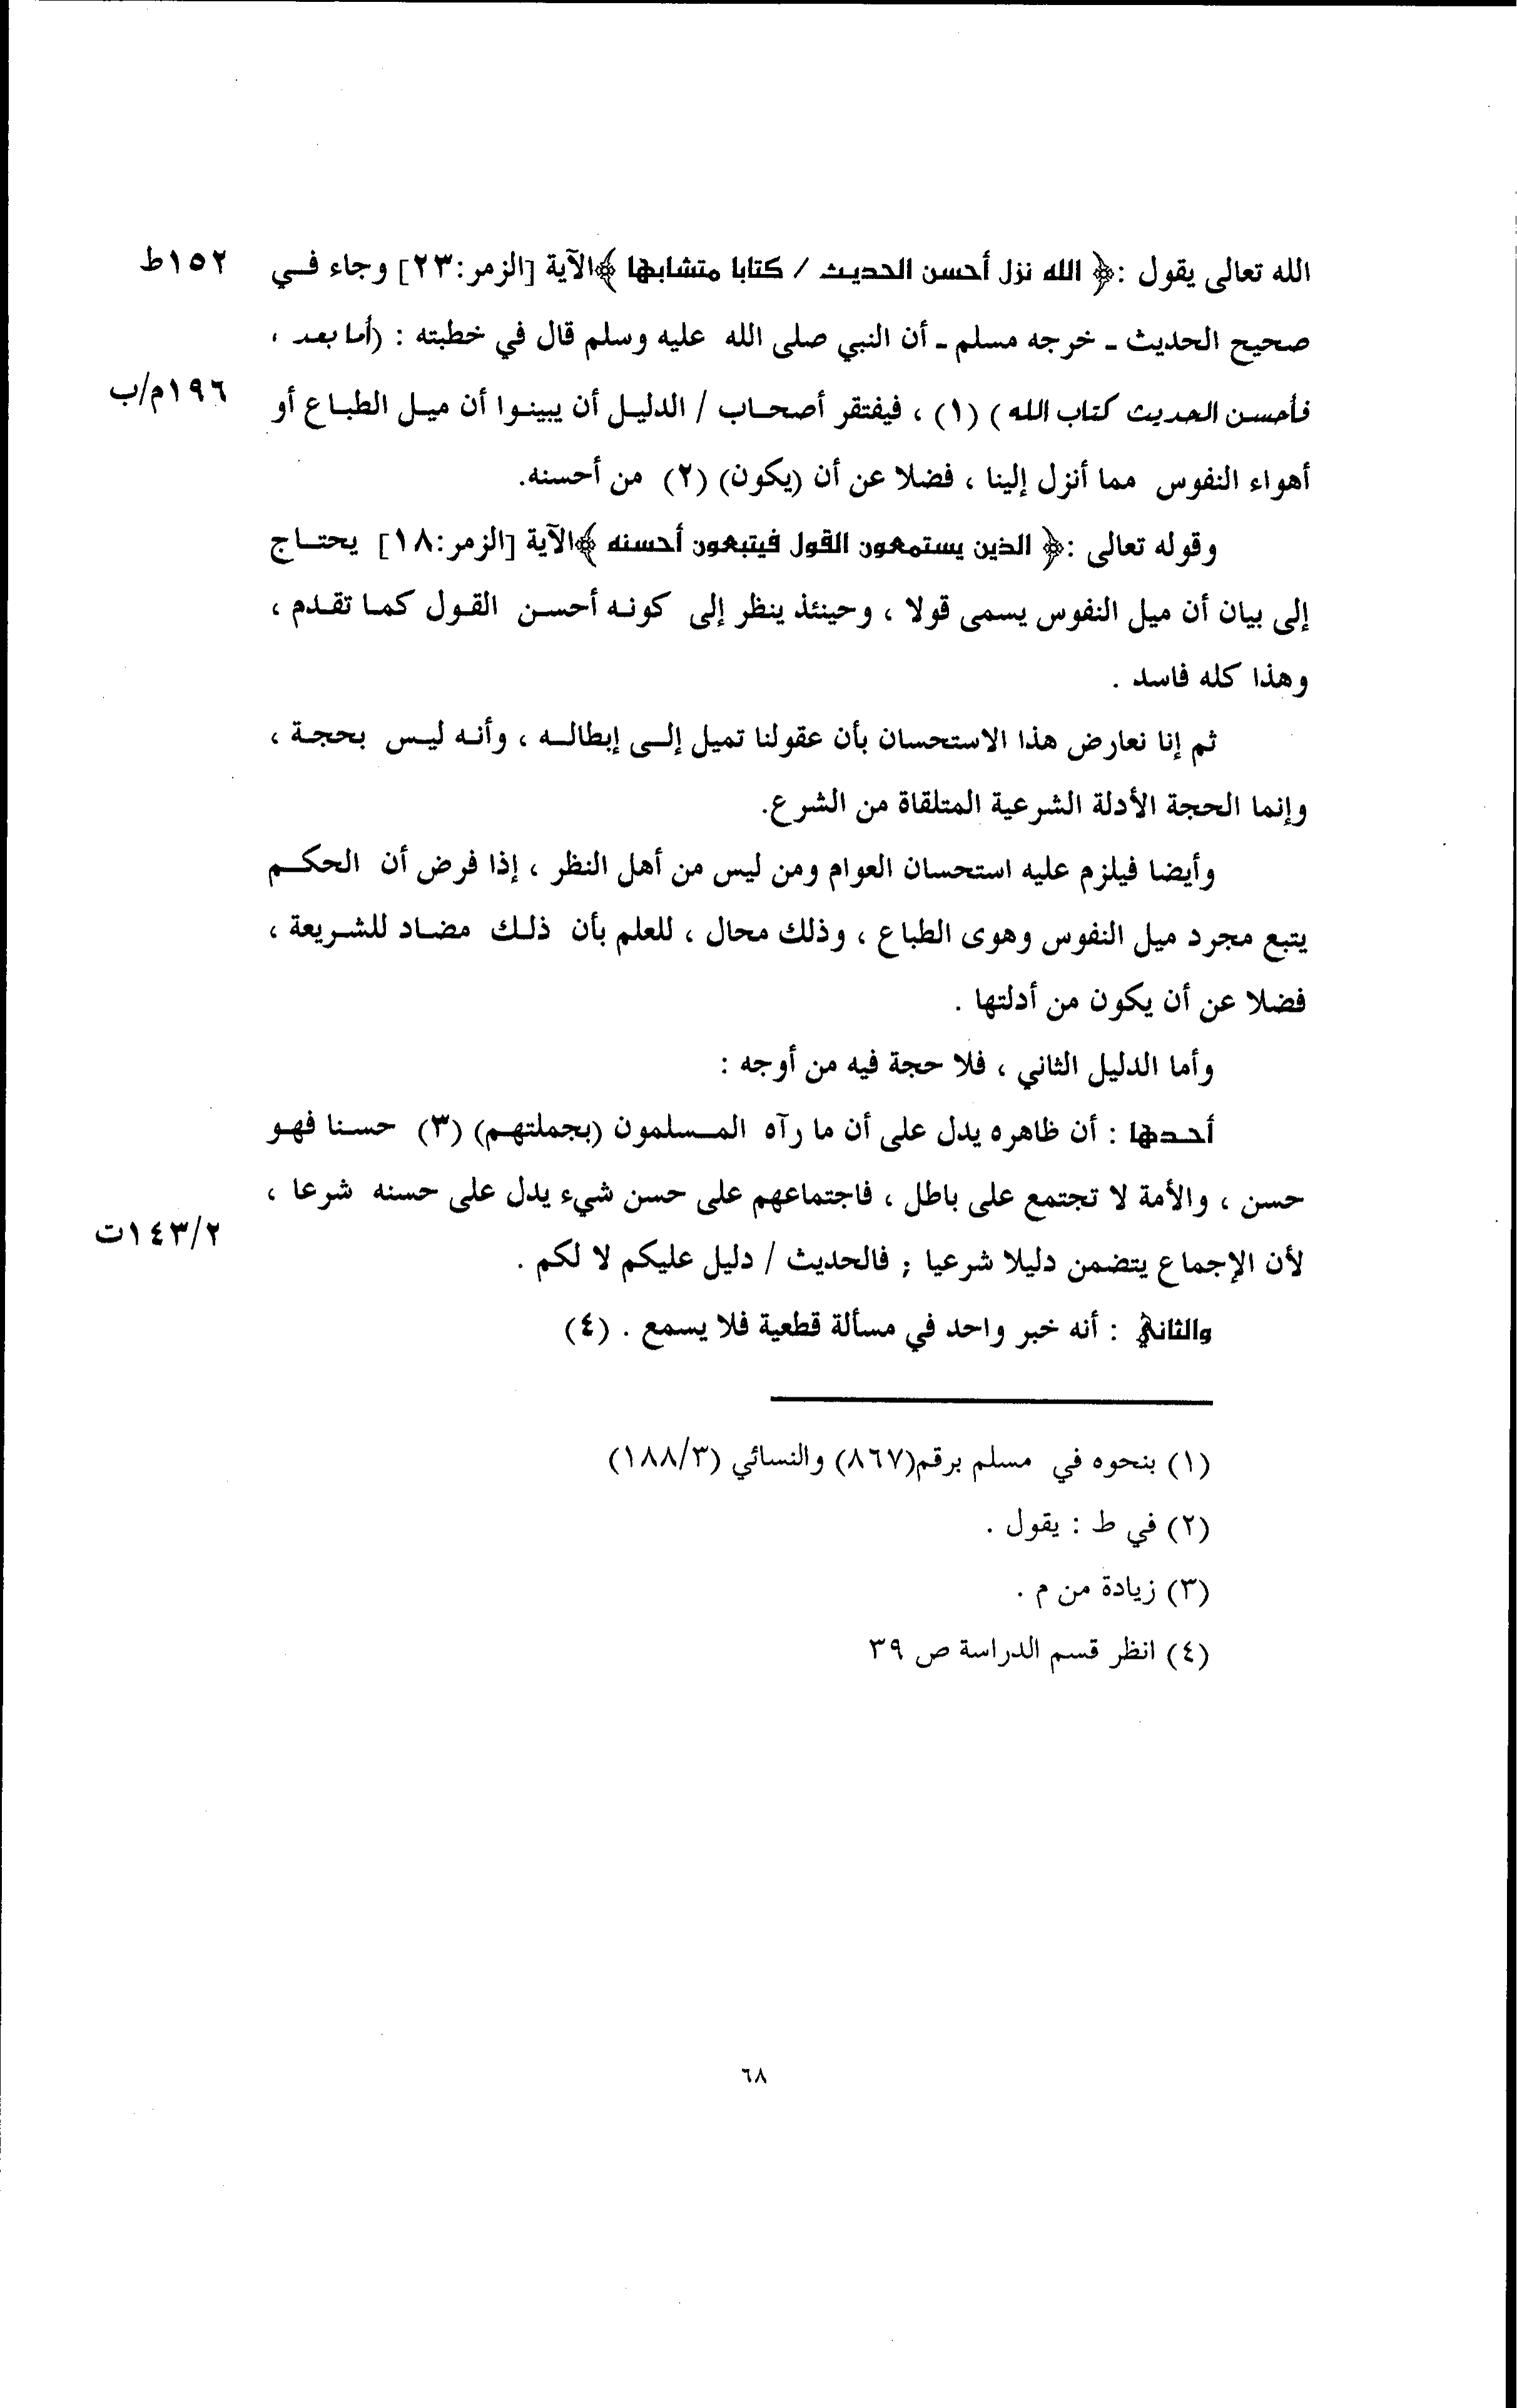 الله تعالى يقول :﴿ الله نزل أحسن الحديث / كتابا متشابها ﴾الآية [الزمر:٢٣] وجاء في ١٥٢ط
صحيح الحديث ـ خرجه مسلم ـ أن النبي صلى الله عليه وسلم قال في خطبته : (أما بعد ،
فأحسن الحديث كتاب الله) (١) ، فيفتقر أصحاب / الدليل أن يبينوا أن ميل الطباع أو ١٩٦م/ب
أهواء النفوس مما أنزل إلينا ، فضلا عن أن (يكون) (٢) من أحسنه.
وقوله تعالى :﴿ الذين يستمعون القول فيتبعون أحسنه ﴾الآية [الزمر:١٨] يحتاج
إلى بيان أن ميل النفوس يسمى قولا ، وحينئذ ينظر إلى كونه أحسن القول كما تقدم ،
وهذا كله فاسد .
ثم إنا نعارض هذا الاستحسان بأن عقولنا تميل إلى إبطاله ، وأنه ليس بحجة ،
وإنما الحجة الأدلة الشرعية المتلقاة من الشرع.
وأيضا فيلزم عليه استحسان العوام ومن ليس من أهل النظر ، إذا فرض أن الحكم
يتبع مجرد ميل النفوس وهوى الطباع ، وذلك محال ، للعلم بأن ذلك مضاد للشريعة ،
فضلا عن أن يكون من أدلتها .
وأما الدليل الثاني ، فلا حجة فيه من أوجه :
أحدها : أن ظاهره يدل على أن ما رآه المسلمون (بجملتهم) (٣) حسنا فهو
حسن ، والأمة لا تجتمع على باطل ، فاجتماعهم على حسن شيء يدل على حسنه شرعا ،
لأن الإجماع يتضمن دليلا شرعيا ; فالحديث / دليل عليكم لا لكم . ١٤٣/٢ت
والثاني : أنه خبر واحد في مسألة قطعية فلا يسمع . (٤)
(١) بنحوه في مسلم برقم(٨٦٧) والنسائي (١٨٨/٣)
(٢) في ط : يقول .
(٣) زيادة من م .
(٤) انظر قسم الدراسة ص ٣٩
٦٨